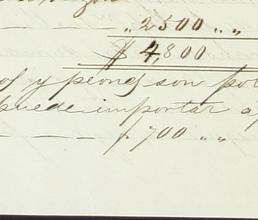 " 2500 " "
$ 4,800
y peones son
puede importar
" 700 " "